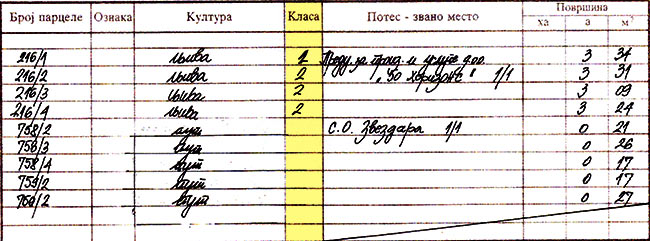 Број парцеле Ознака Култура Класа Потес - звано место Површина
ха а м²
216/1 њива 2 Предуз. за произ. и услуге д.о.о. 3 34
216/2 њива 2 „50 хоризонт“ 1/1 3 31
216/3 њива 2 3 09
216/4 њива 2 3 24
758/2 С.О. Звездара 1/1 0 21
758/3 0 26
758/4 пут 0 17
759/2 пут 0 17
760/2 пут 0 27